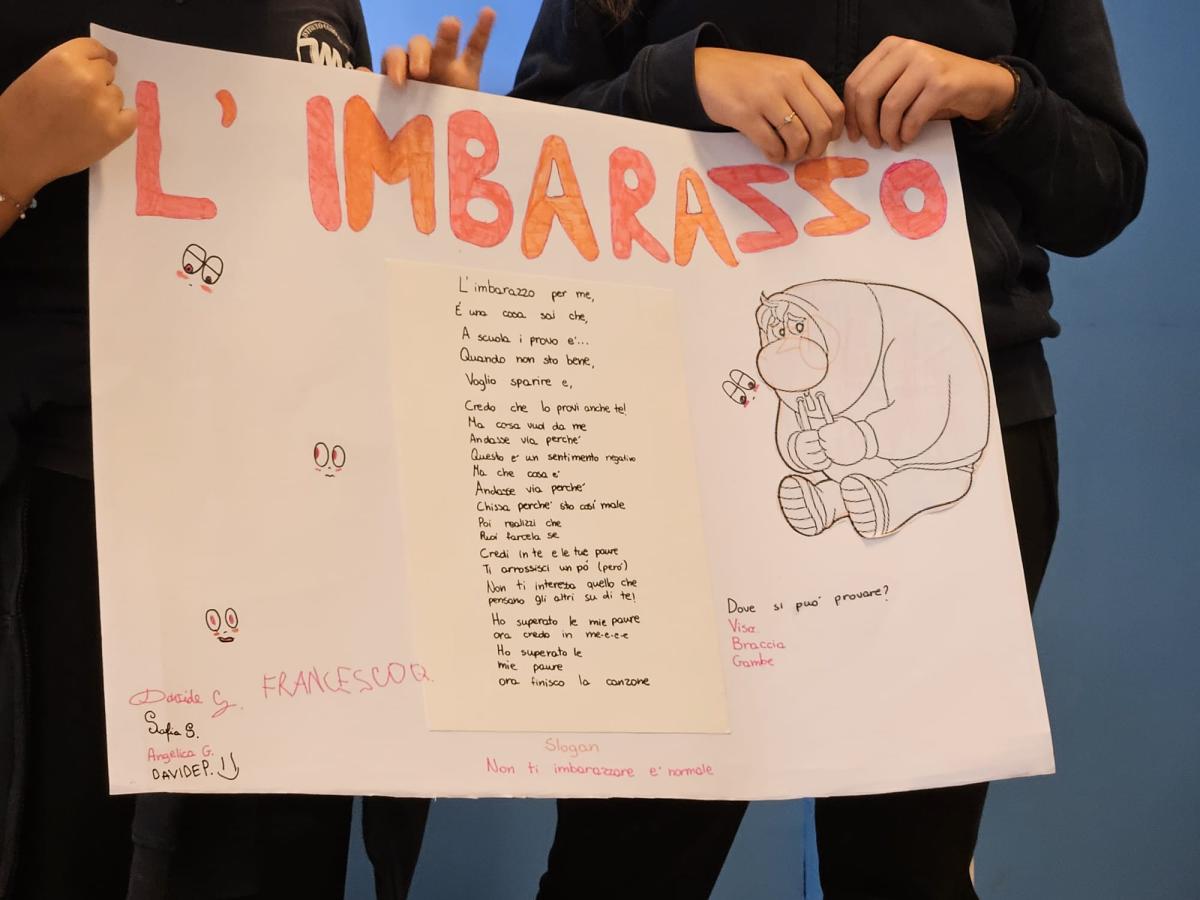 L' IMBARASSO
L'imbarazzo per me,
É una cosa sai che,
A scuola i provo e'...
Quando non sto bene,
Voglio sparire e,
Credo che lo provi anche te!
Ma cosa vuoi da me
Andasse via perche'
Questo e' un sentimento negativo
Ma che cosa e'
Andasse via perche'
Chissa perche' sto così male
Poi realizzi che
Puoi farcela se
Credi in te e le tue paure
Ti arrossisci un pó (però)
Non ti interessa quello che
pensano gli altri su di te!
Ho superato le mie paure
ora credo in me-e-e-e
Ho superato le
mie paure
ora finisco la canzone
Dove si puo' provare?
Viso
Braccia
Gambe
Davide G.
FRANCESCO Q.
Sofia S.
Angelica G.
DAVIDE P.
Slogan
Non ti imbarazzare e' normale